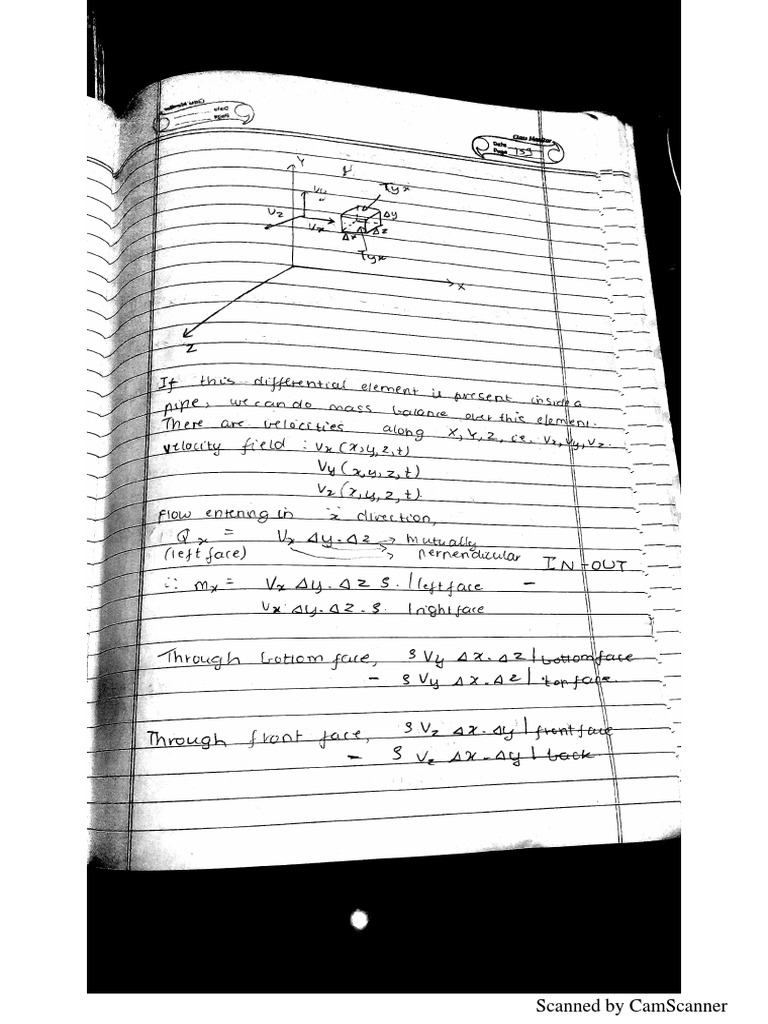 Class Monitor
Date
Page 159
Y
Vy
Tyx
Vz
Vx
Δy
Δx
Δz
Tyx
X
Z
If this differential element is present inside a
pipe, we can do mass balance over this element.
There are velocities along X, Y, Z, i.e. Vx, Vy, Vz.
velocity field : Vx (x, y, z, t)
Vy (x, y, z, t)
Vz (x, y, z, t).
Flow entering in x direction,
Qx = Vx Δy. Δz → Mutually
(left face) perpendicular
IN-OUT
∴ mx = Vx Δy. Δz ρ. | left face −
Vx Δy. Δz. ρ. | right face
Through bottom face, ρ Vy Δx. Δz | bottom face
− ρ Vy Δx. Δz | top face.
Through front face, ρ Vz Δx. Δy | front face
− ρ Vz Δx. Δy | back
Scanned by CamScanner